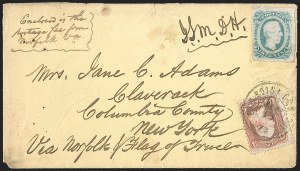 Enclosed is the
postage fee from
Norfolk Va
Mrs. Jane C. Adams
Claverack
Columbia County
New York
Via Norfolk & Flag of Truce